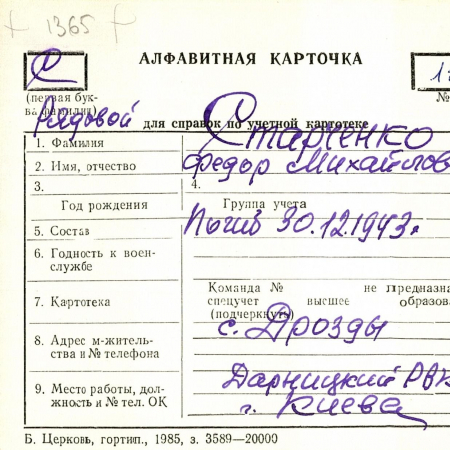 1365
АЛФАВИТНАЯ КАРТОЧКА
С
(первая бук-
ва фамилии)
№
Рядовой
для справок по учетной картотеке
1. Фамилия Старченко
2. Имя, отчество Федор Михайлов
3. 4.
Год рождения Группа учета
5. Состав Погиб 30.12.1943г
6. Годность к воен-
 службе
Команда № не предназна
7. Картотека спецучет высшее образова
(подчеркнуть)
с. Дрозды
8. Адрес м-житель-
ства и № телефона
Дарницкий РВК
9. Место работы, дол-
жность и № тел. ОК г. Киева
Б. Церковь, гортип., 1985, з. 3589—20000